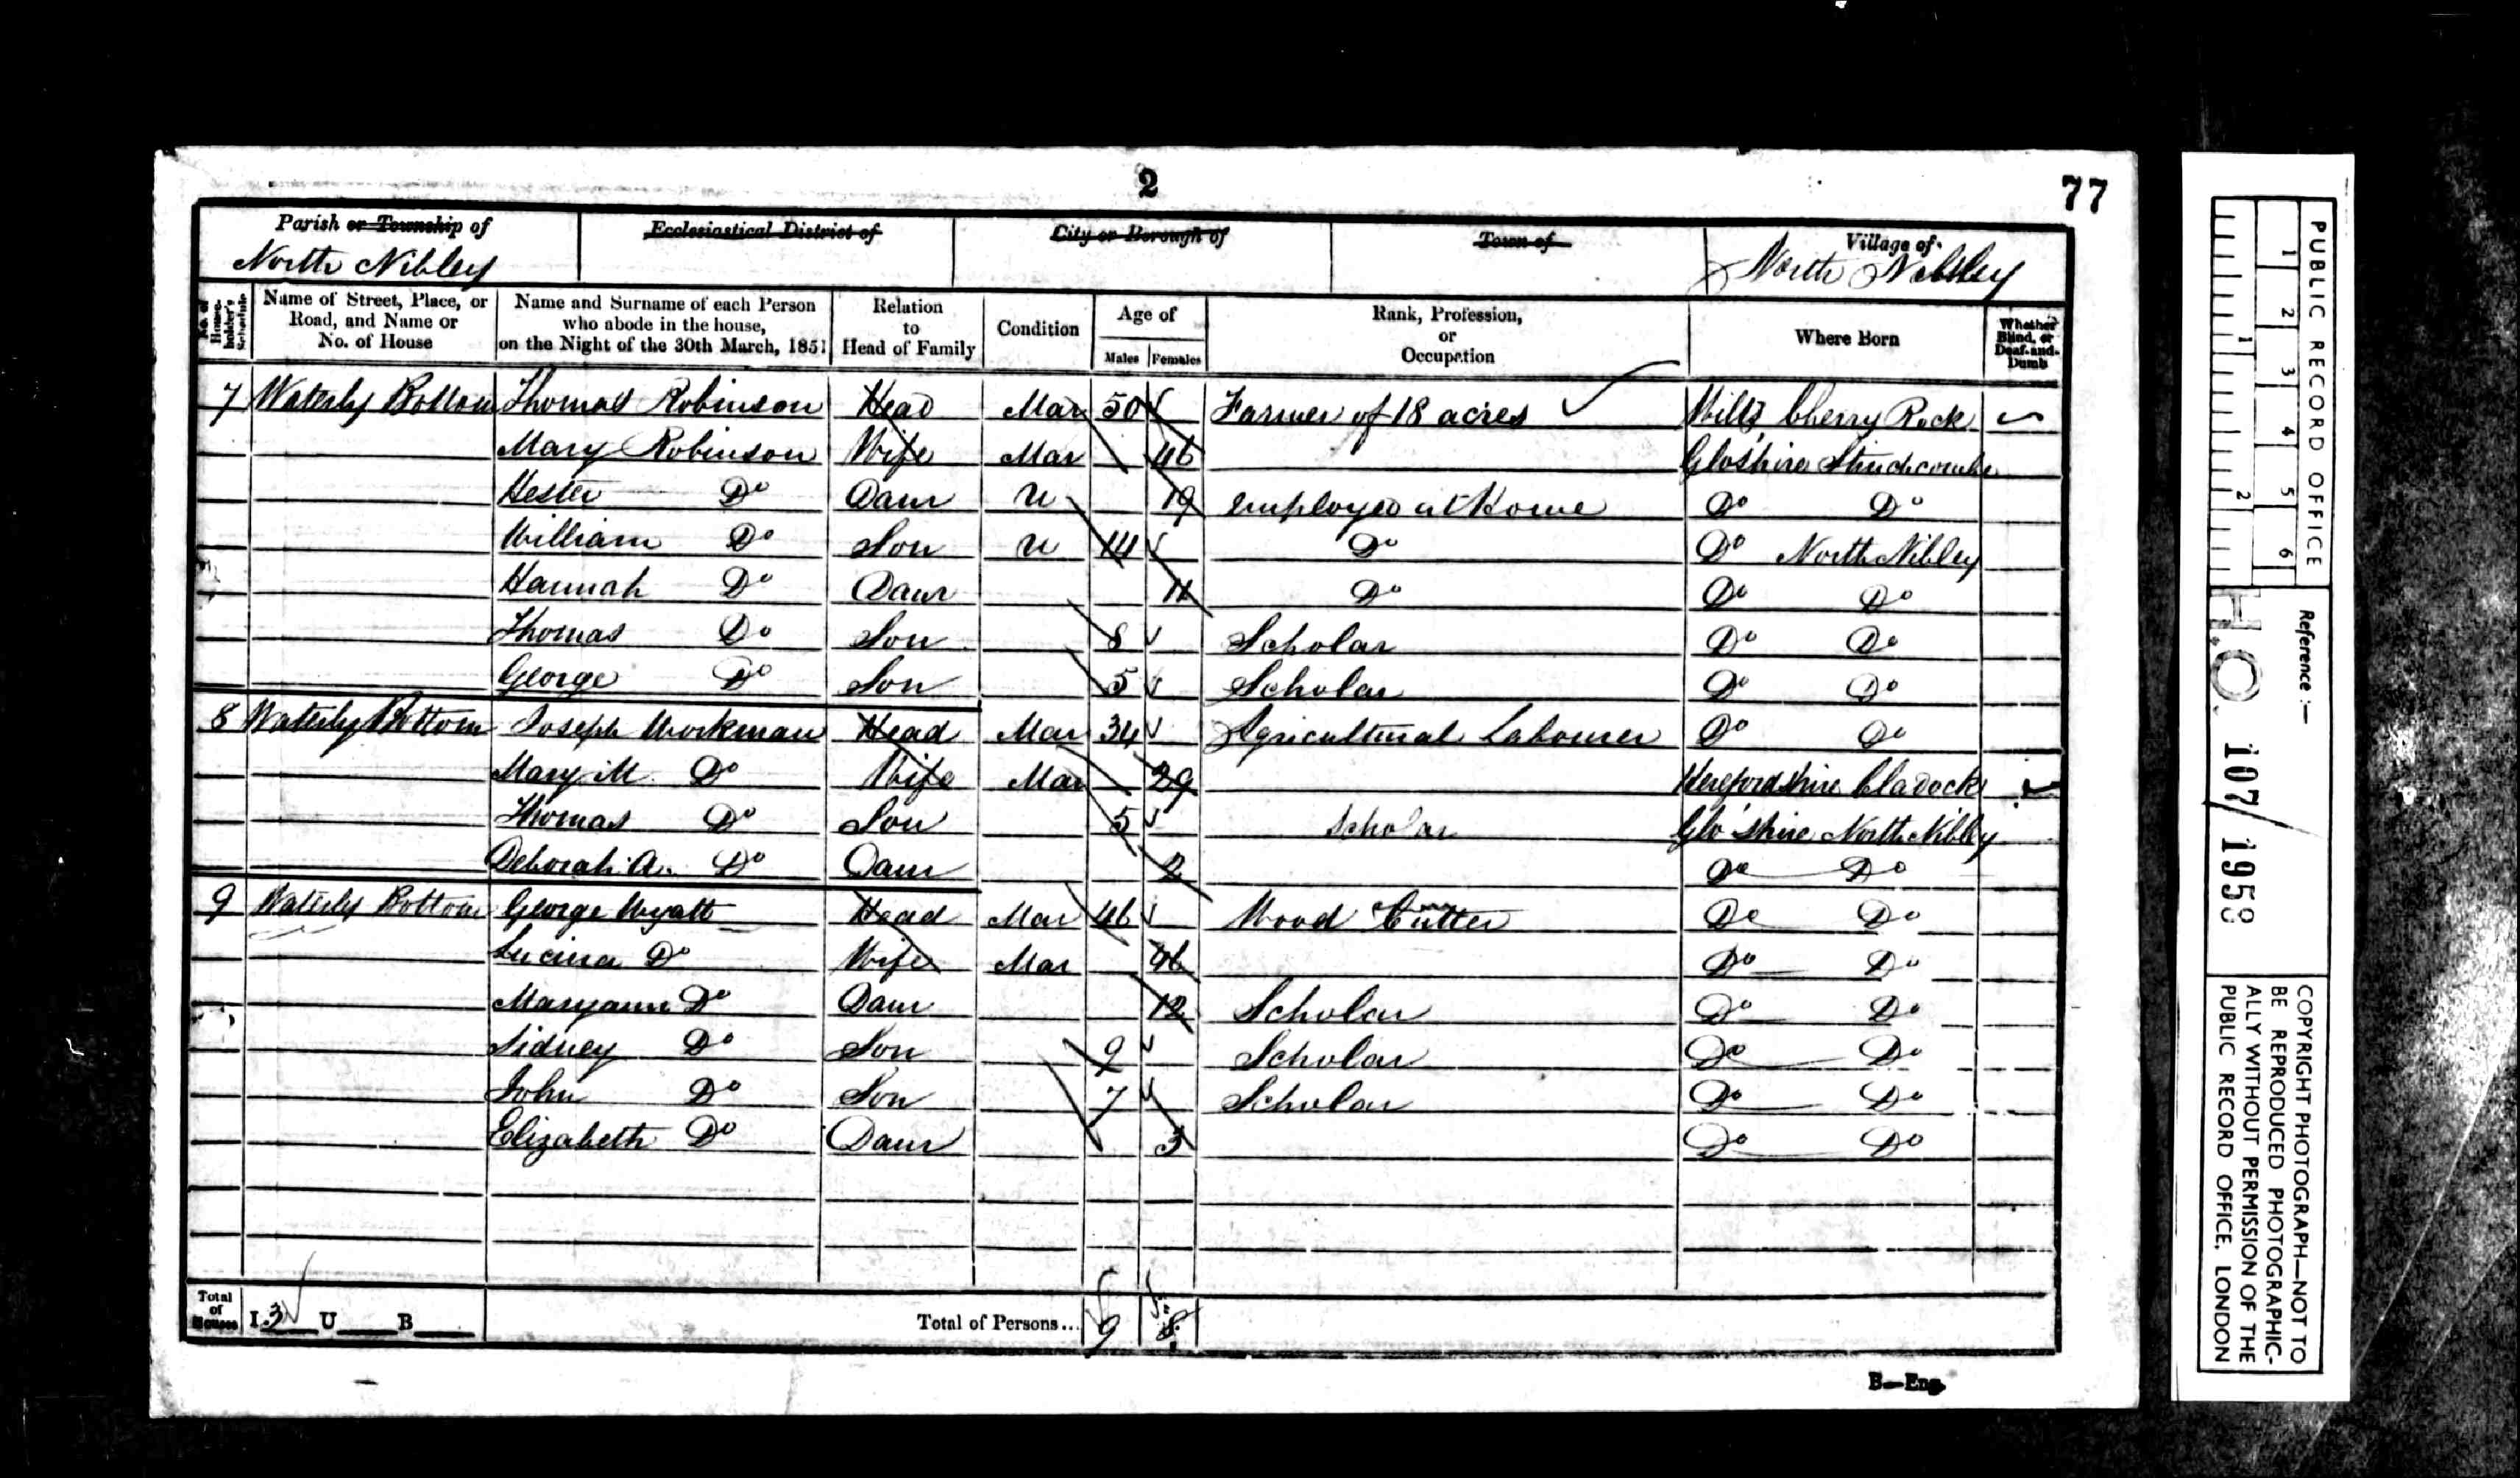 2
77
Parish or Township of
North Nibley
Ecclesiastical District of
City or Borough of
Town of
Village of
North Nibley
No. of House-holder's Schedule
Name of Street, Place, or Road, and Name or No. of House
Name and Surname of each Person who abode in the house, on the Night of the 30th March, 1851
Relation to Head of Family
Condition
Age of
Males
Females
Rank, Profession, or Occupation
Where Born
Whether Blind, or Deaf-and-Dumb
7 Waterly Bottom Thomas Robinson Head Mar 50 Farmer of 18 acres Wilts Cherry Rock
Mary Robinson Wife Mar 46 Glo'shire Stinchcombe
Hester Do Daur U 19 employed at Home Do Do
William Do Son U 14 Do Do North Nibley
Hannah Do Daur 11 Do Do Do
Thomas Do Son 8 Scholar Do Do
George Do Son 5 Scholar Do Do
8 Waterly Bottom Joseph Workman Head Mar 34 Agricultural Labourer Do Do
Mary M Do Wife Mar 29 Herefordshire Cladock
Thomas Do Son 5 Scholar Glo'shire North Nibley
Deborah A. Do Daur 2 Do Do
9 Waterly Bottom George Wyatt Head Mar 46 Wood Cutter Do Do
Lucina Do Wife Mar 46 Do Do
Maryann Do Daur 12 Scholar Do Do
Sidney Do Son 9 Scholar Do Do
John Do Son 7 Scholar Do Do
Elizabeth Do Daur 3 Do Do
Total of Houses I 3 U B Total of Persons... 9 8
B—Eng.
PUBLIC RECORD OFFICE
1 2 3 4 5 6
1 2
Reference :—
H.O. 107/1953
COPYRIGHT PHOTOGRAPH—NOT TO
BE REPRODUCED PHOTOGRAPHIC-
ALLY WITHOUT PERMISSION OF THE
PUBLIC RECORD OFFICE, LONDON